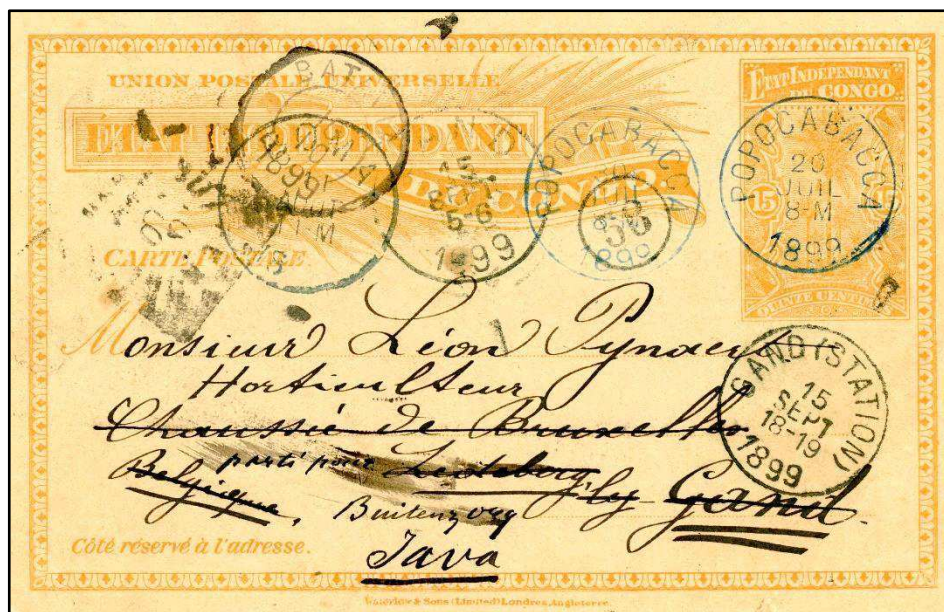 UNION POSTALE UNIVERSELLE
ÉTAT INDÉPENDANT
DU CONGO.
CARTE POSTALE
ÉTAT INDÉPENDANT
DU CONGO
15
15
QUINZE CENTIMES
POPOCABACCA
20
JUIL
8-M
1899
POPOCABACCA
1899
5-6
1899
1899
GAND (STATION)
15
SEPT
18-19
1899
Monsieur Léon Pynaert
Horticulteur
Chaussée de Bruxelles
parti pour Ledeberg, lez Gand.
Belgique, Buitenzorg
Java
Côté réservé à l'adresse.
Waterlow & Sons (Limited) Londres, Angleterre.